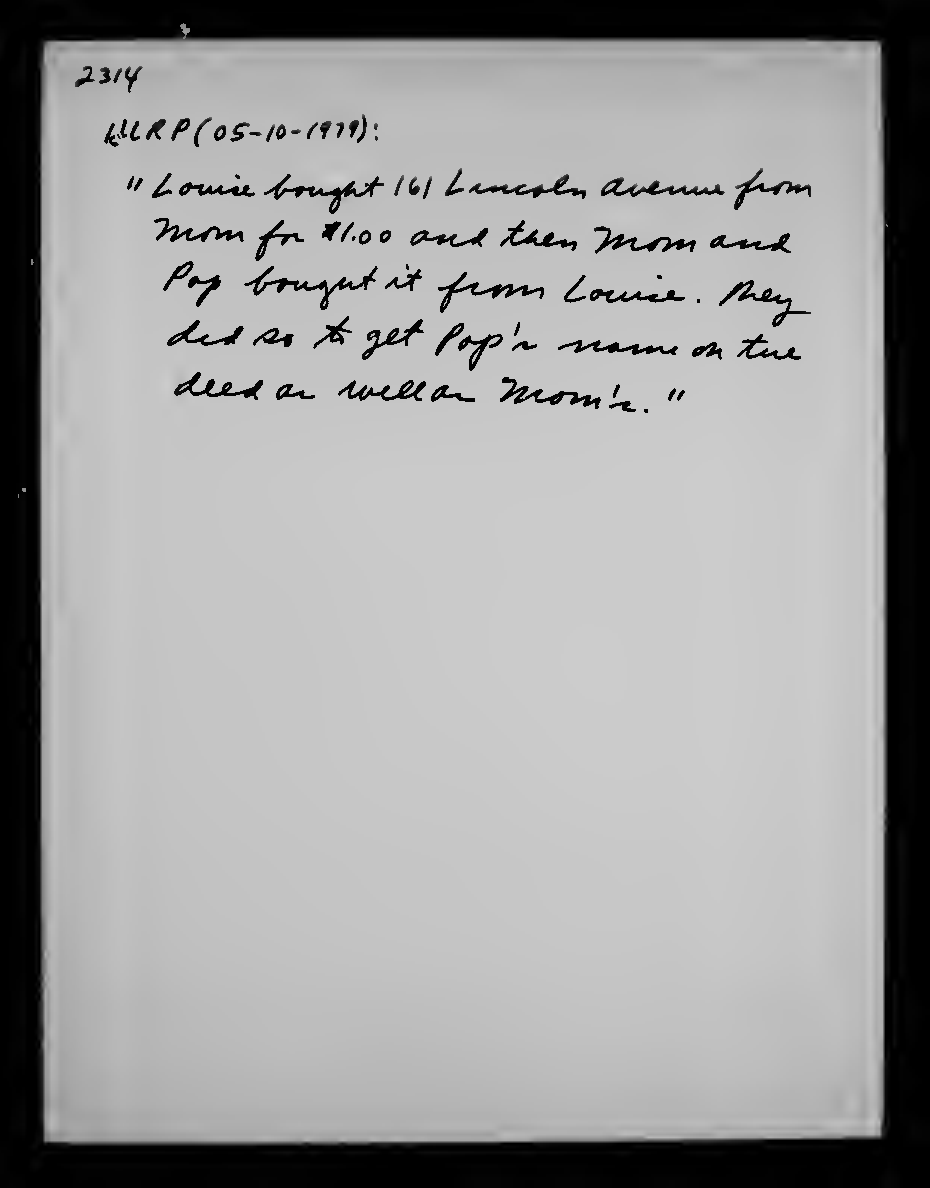 2314
(05-10-1979):
"Louise bought 161 Lincoln Avenue from
Mom for $1.00 and then Mom and
Pop bought it from Louise. They
did so to get Pop's name on the
deed as well as Mom's."